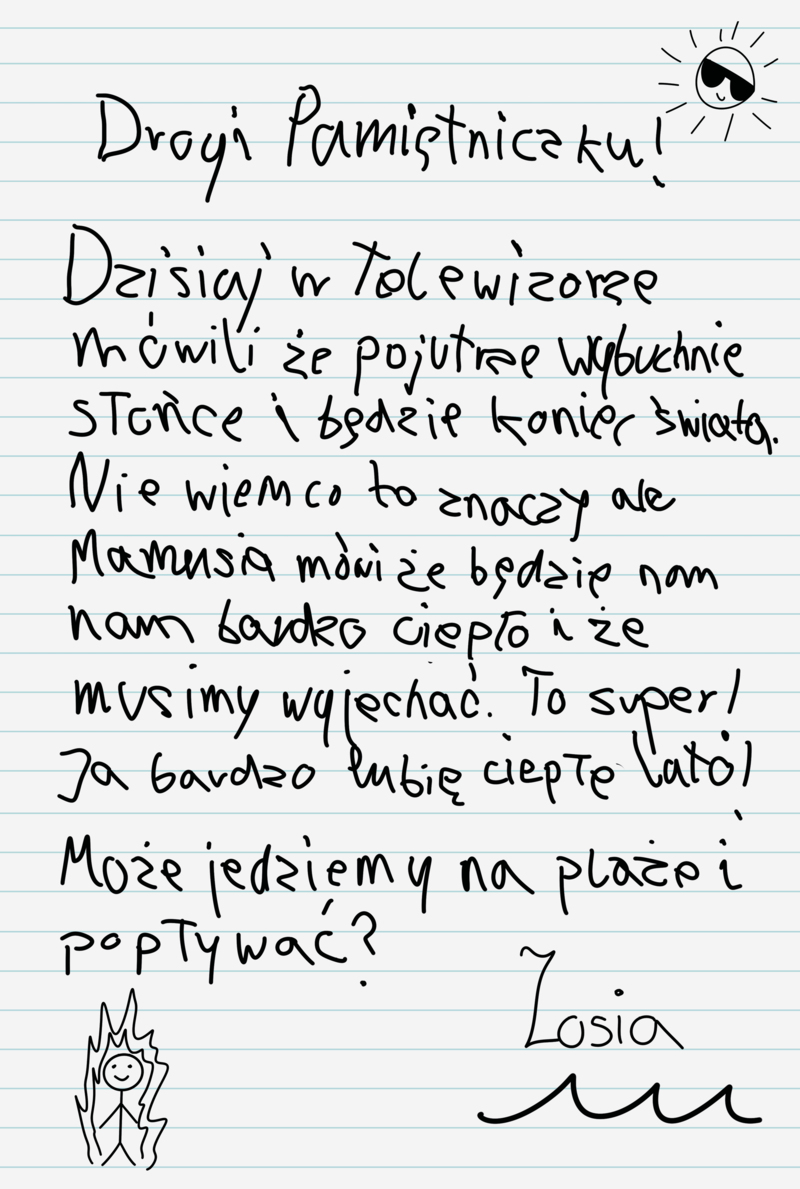 Drogi Pamiętniczku!
Dzisiaj w Telewizorze
mówili że pojutrze wybuchnie
słońce i będzie koniec świata.
Nie wiem co to znaczy ale
Mamusia mówi że będzie nam
nam bardzo ciepło i że
musimy wyjechać. To super!
Ja bardzo lubię ciepłe lato!
Może jedziemy na plaże i
popływać?
Zosia